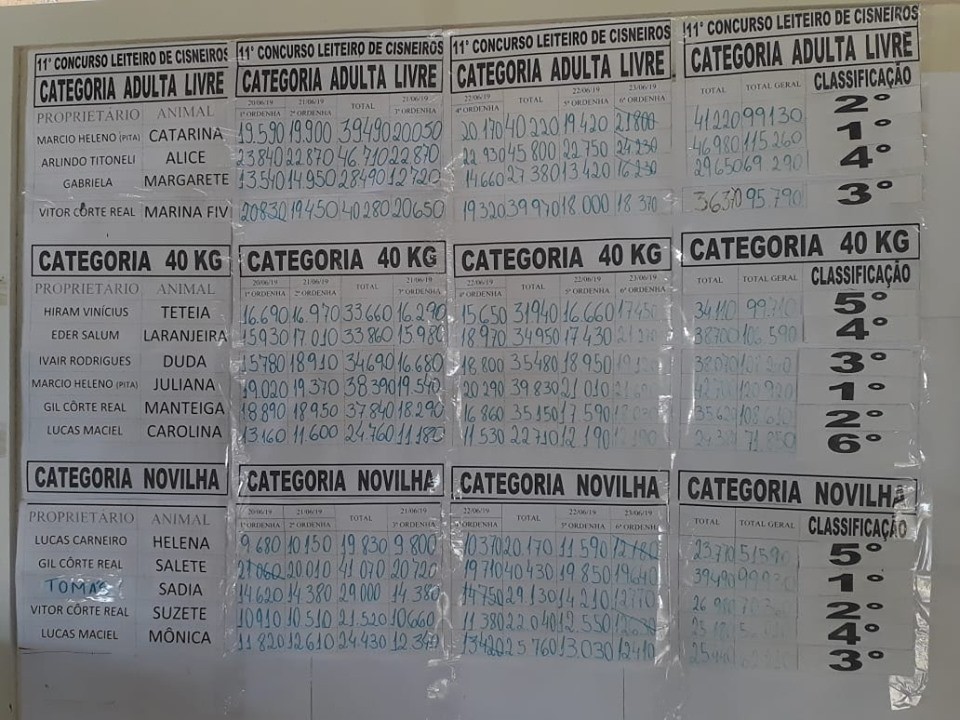 11° CONCURSO LEITEIRO DE CISNEIROS 11° CONCURSO LEITEIRO DE CISNEIROS 11° CONCURSO LEITEIRO DE CISNEIROS 11° CONCURSO LEITEIRO DE CISNEIROS
CATEGORIA ADULTA LIVRE CATEGORIA ADULTA LIVRE CATEGORIA ADULTA LIVRE CATEGORIA ADULTA LIVRE
PROPRIETÁRIO ANIMAL 20/06/19 1ª ORDENHA 21/06/19 2ª ORDENHA TOTAL 21/06/19 3ª ORDENHA 22/06/19 4ª ORDENHA TOTAL 22/06/19 5ª ORDENHA 23/06/19 6ª ORDENHA TOTAL TOTAL GERAL CLASSIFICAÇÃO
MARCIO HELENO (PITA) CATARINA 19.590 19.900 39490 20050 20 170 40 220 19 420 21800 41.220 99130 2°
ARLINDO TITONELI ALICE 23840 22870 46.710 22870 22 930 45 800 22 750 24230 46980 115.260 1°
GABRIELA MARGARETE 13540 14.950 28490 12720 14660 27 380 13420 16230 29650 69 290 4°
VITOR CÔRTE REAL MARINA FIV 20830 19450 40280 20650 19320 39970 18 000 18 370 36370 95.790 3°
CATEGORIA 40 KG CATEGORIA 40 KG CATEGORIA 40 KG CATEGORIA 40 KG
PROPRIETÁRIO ANIMAL 20/06/19 1ª ORDENHA 21/06/19 2ª ORDENHA TOTAL 21/06/19 3ª ORDENHA 22/06/19 4ª ORDENHA TOTAL 22/06/19 5ª ORDENHA 23/06/19 6ª ORDENHA TOTAL TOTAL GERAL CLASSIFICAÇÃO
HIRAM VINÍCIUS TETEIA 16.690 16.970 33660 16.290 15650 31940 16.660 17450 34110 99.710 5°
EDER SALUM LARANJEIRA 15930 17010 33.860 15.980 18.970 34.950 17 430 38700 106.590 4°
IVAIR RODRIGUES DUDA 15780 18.910 34690 16.680 18 800 35480 18 950 3°
MARCIO HELENO (PITA) JULIANA 19.020 19.370 38390 19.540 20 290 39 830 21 010 1°
GIL CÔRTE REAL MANTEIGA 18 890 18 950 37 840 18 290 16 860 35150 17 590 2°
LUCAS MACIEL CAROLINA 13160 11.600 24.760 11 180 11 530 22710 12 190 71.850 6°
CATEGORIA NOVILHA CATEGORIA NOVILHA CATEGORIA NOVILHA CATEGORIA NOVILHA
PROPRIETÁRIO ANIMAL 20/06/19 1ª ORDENHA 21/06/19 2ª ORDENHA TOTAL 21/06/19 3ª ORDENHA 22/06/19 4ª ORDENHA TOTAL 22/06/19 5ª ORDENHA 23/06/19 6ª ORDENHA TOTAL TOTAL GERAL CLASSIFICAÇÃO
LUCAS CARNEIRO HELENA 9 680 10 150 19 830 9 800 10370 20 170 11 590 12180 23.770 5°
GIL CÔRTE REAL SALETE 21060 20 010 41 070 20 720 19710 40 430 19 850 19640 39490 1°
TOMAS SADIA 14 620 14 380 29 000 14 380 14 750 29 130 14 210 12770 2°
VITOR CÔRTE REAL SUZETE 10910 10 510 21.520 10660 11 380 22 040 12.550 4°
LUCAS MACIEL MÔNICA 11 820 12 610 24 430 12 340 13420 25 760 13.030 12410 3°